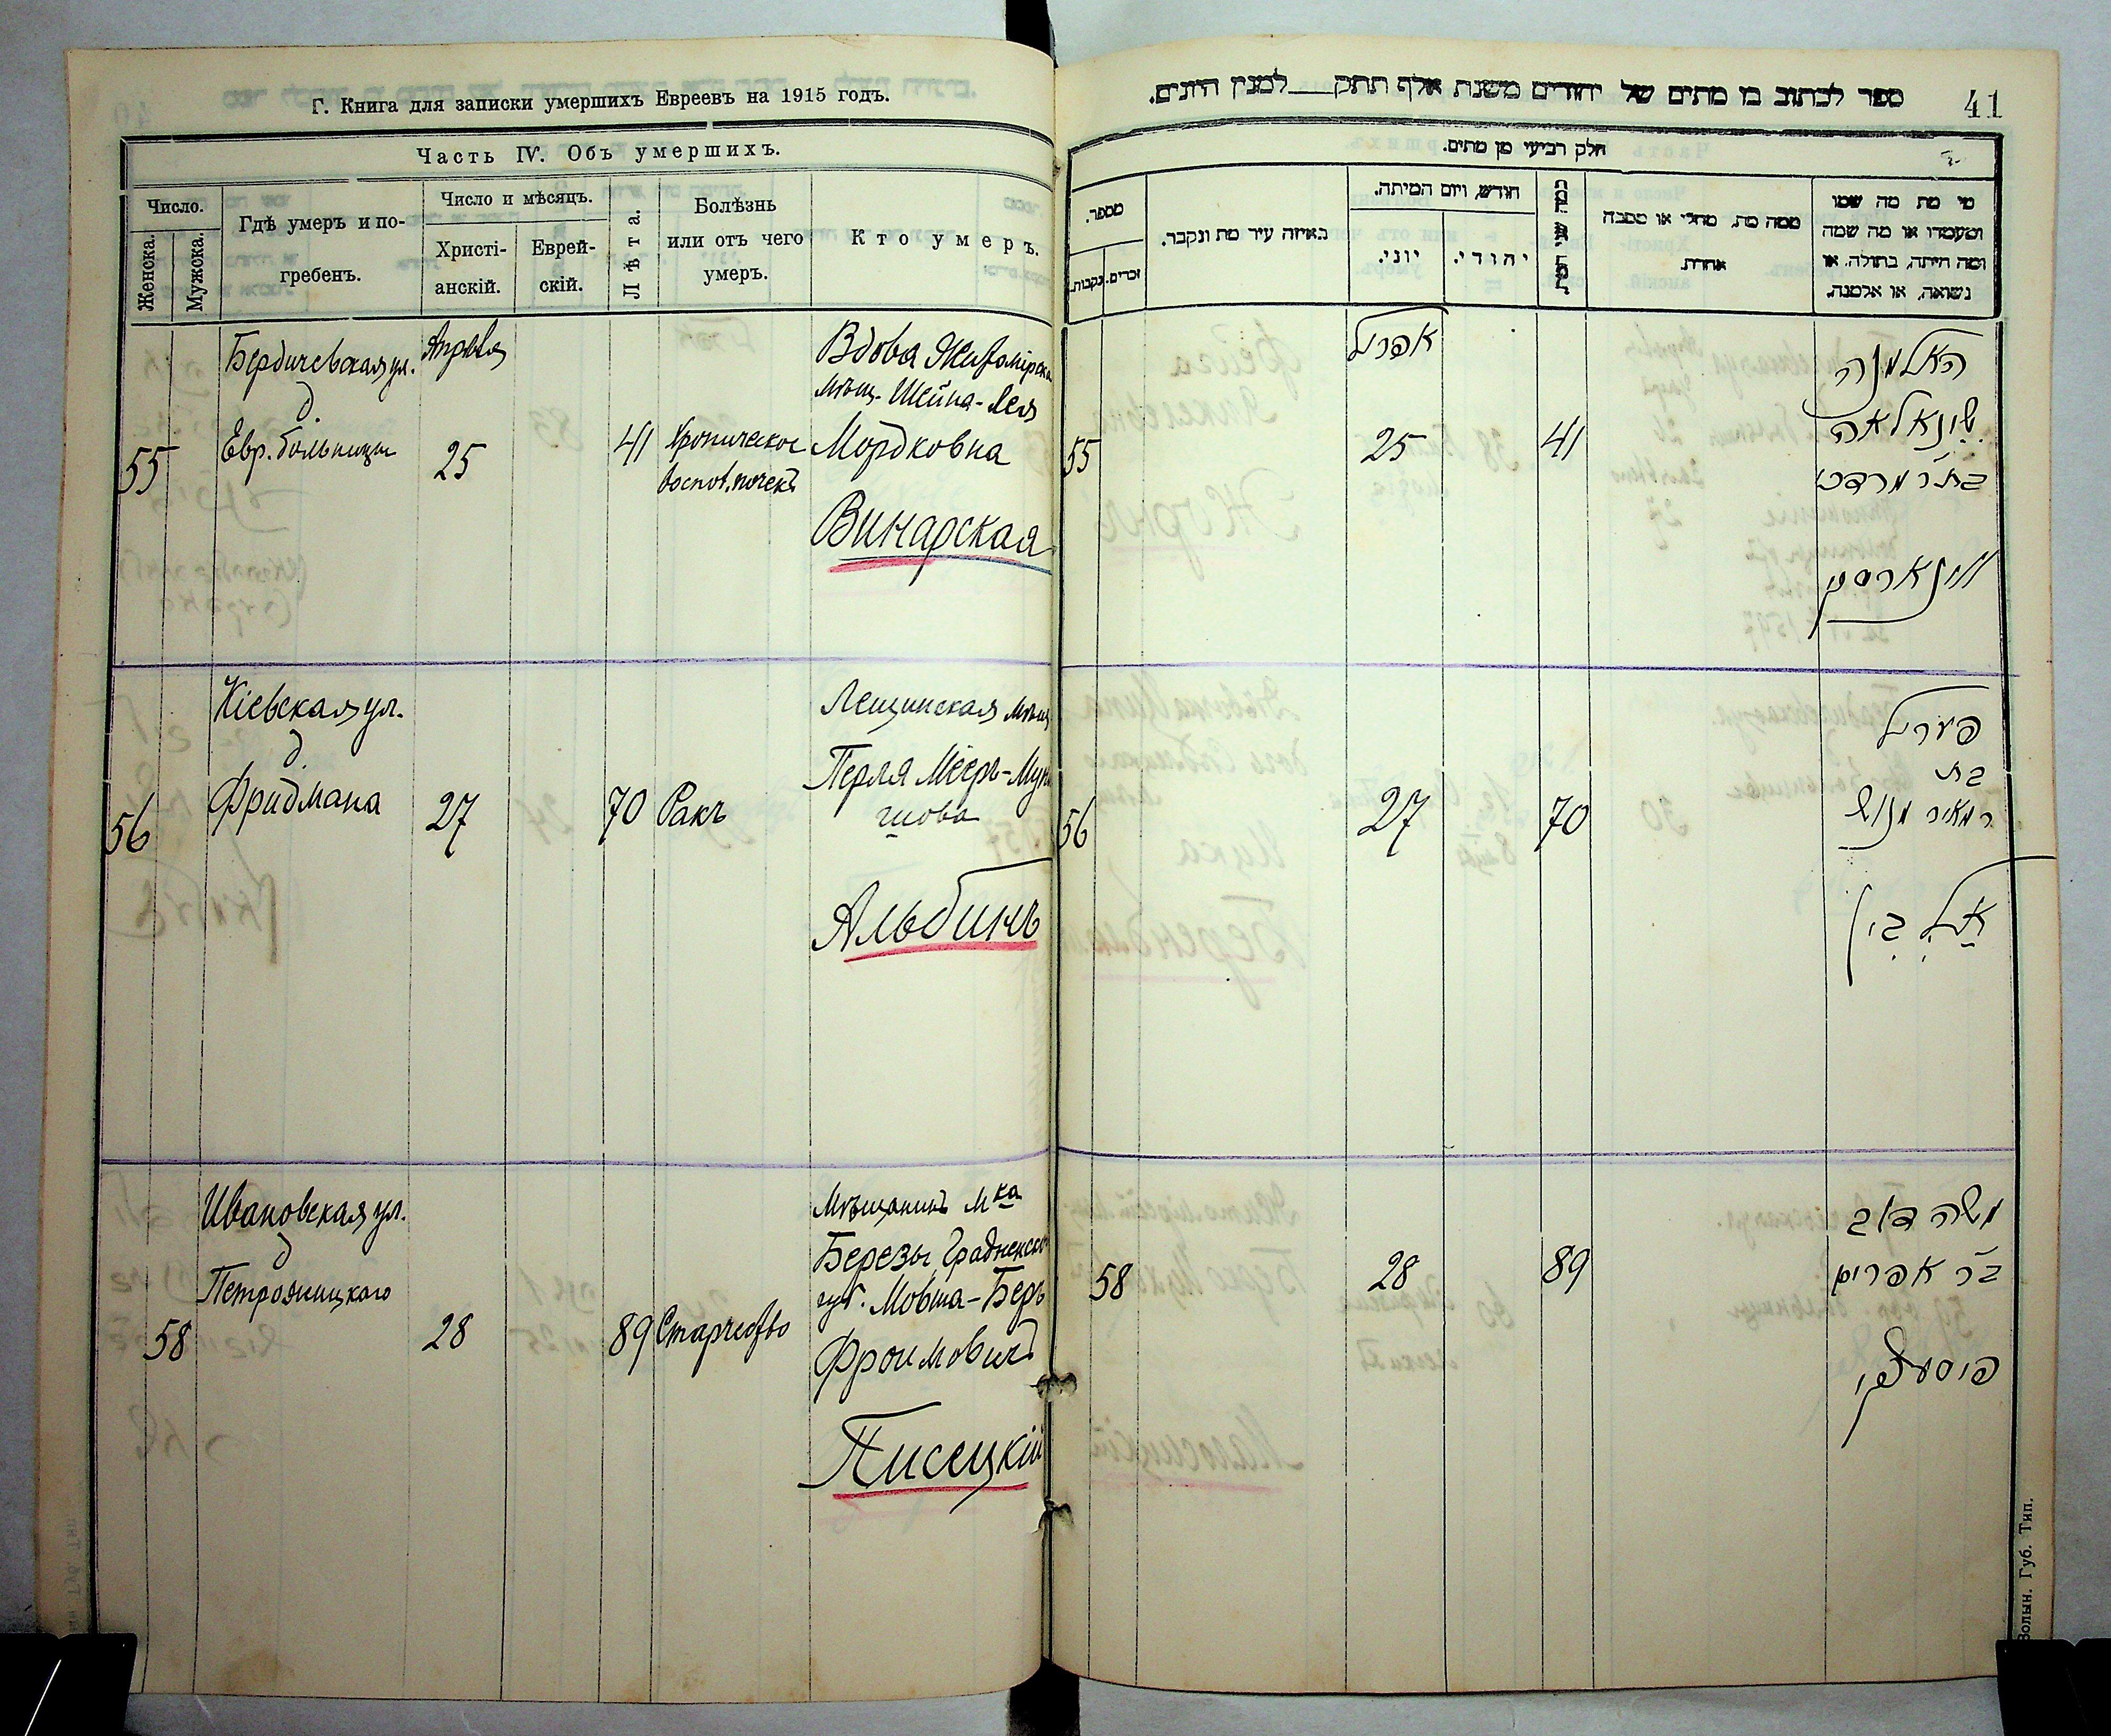 Г. Книга для записки умершихъ Евреевъ на 1915 годъ.
Часть IV. Объ умершихъ.
Число.
Женска.
Мужска.
Гдѣ умеръ и по-
гребенъ.
Число и мѣсяцъ.
Христі-
анскій.
Еврей-
скій.
Лѣта.
Болѣзнь
или отъ чего
умеръ.
Кто умеръ.
55
Бердичевская ул.
д.
Евр. больницы
Апрѣля
25
41
Хроническое
воспол. почекъ
Вдова Житомірска
мѣщ. Шейна-Лея
Мордковна
Винарская
56
Кіевская ул.
д.
Фридмана
27
70
Ракъ
Лещинская мѣщ
Перля Меіръ-Мун
шова
Альбинъ
58
Ивановская ул.
д
28
89
Старчество
Мѣщанинъ мка
Березы, Градненско
губ. Мовша-Беръ
Фроимовичъ
Писецкій
ספר לכתוב בו מתים של יהודים משנת אלף תתק למנין היונים.
41
חלק רביעי מן מתים.
מספר.
זכרים.
נקבות.
באיזה עיר מת ונקבר.
חודש, ויום המיתה.
יוני.
יהודי.
ממה מת, מחלי או מסבה
אחרת.
מי מת מה שמו
ומעמדו או מה שמה
ומה היתה, בתולה, או
נשואה, או אלמנה.
55
אפריל
25
41
האלמנה
שיינא לאה
בת ר מרדכי
ווינארסקי
56
27
70
פערל
בת
ר מאיר מונש
אלבין
58
28
89
משה דוב
בר אפרים
פיסעצקי
Волын. Губ. Тип.